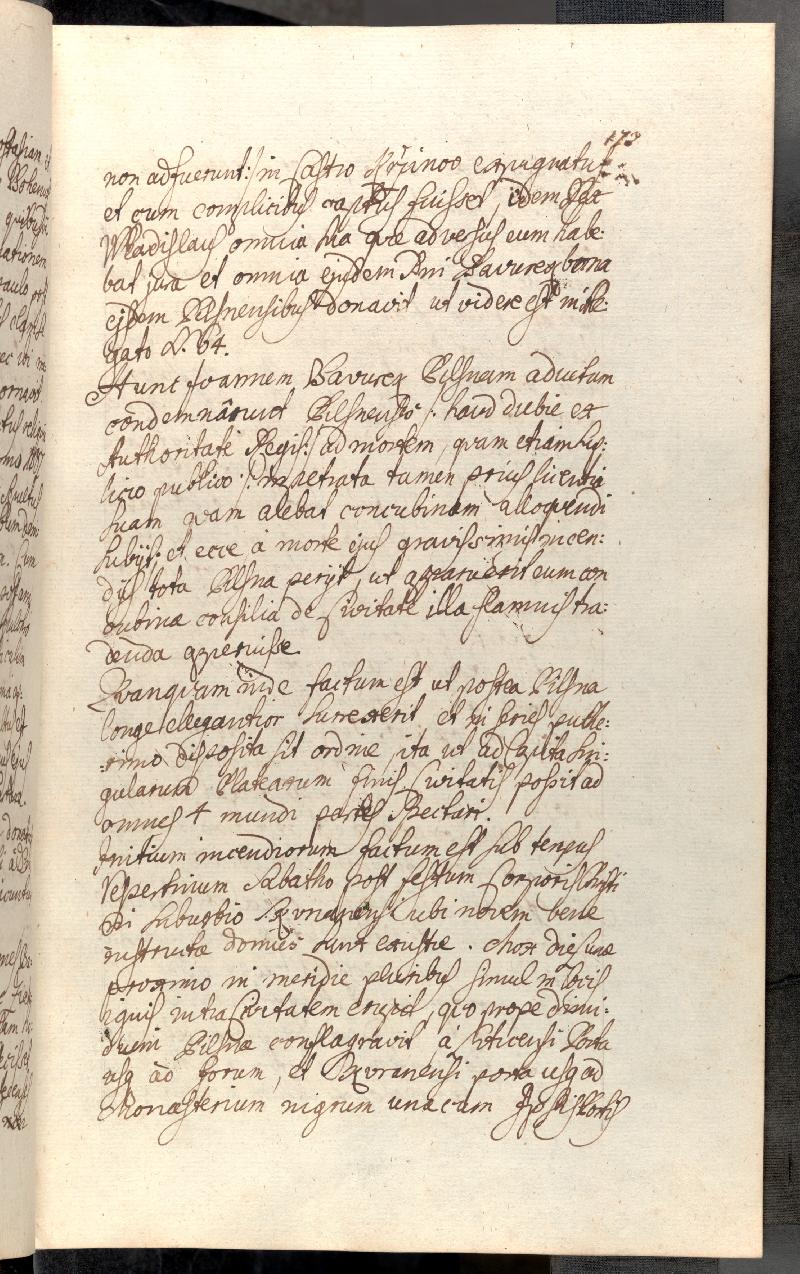 173
non adfuerunt :/ in Castro expugnatus
et cum complicibus captus fuisset, idem Rex
Wladislaus omnia sua quæ adversus eum habe:
bat jura et omnia ejusdem Dni Bavureq bona
ejsdem Pilsnensibus donavit ut videre est in
gato N. 64.
Hunc Joannem Bavureq Pilsnam aductum
condemnârunt Pilsnenses /: haud dubie ex
Authoritate Regis :/ ad mortem, quam etiam sup:
licio publico /: impetrata tamen prius licentia
suam quam alebat concubinam alloquendi
subijt: et ecce à morte ejus gravissimis incen:
dijs tota Pilsna perijt, ut apparuerit eum con
cubinæ consilia de Civitate illa flammis tra:
denda aperuisse.
Quanquam inde factum est ut postea Pilsna
longe elegantior surrexerit et in series pulche:
rrimo disposita sit ordine, ita ut ad Capita sin:
gularum Platearum finis Civitatis possit ad
omnes 4 mundi partes spectari.
Initium incendiorum factum est sub tempus
Vespertinum Sabatho post festum Corporis Christi
in suburbio ubi novem bene
instructæ domus sunt exustæ. Mox die lunæ
proximo in meridie pluribus simul in locis
ignis intra Civitatem erupit, quo prope dimi:
dium Pilsnæ conflagravit à Liticensi Porta
usq ad forum, et porta usq ad
Monasterium nigrum una cum